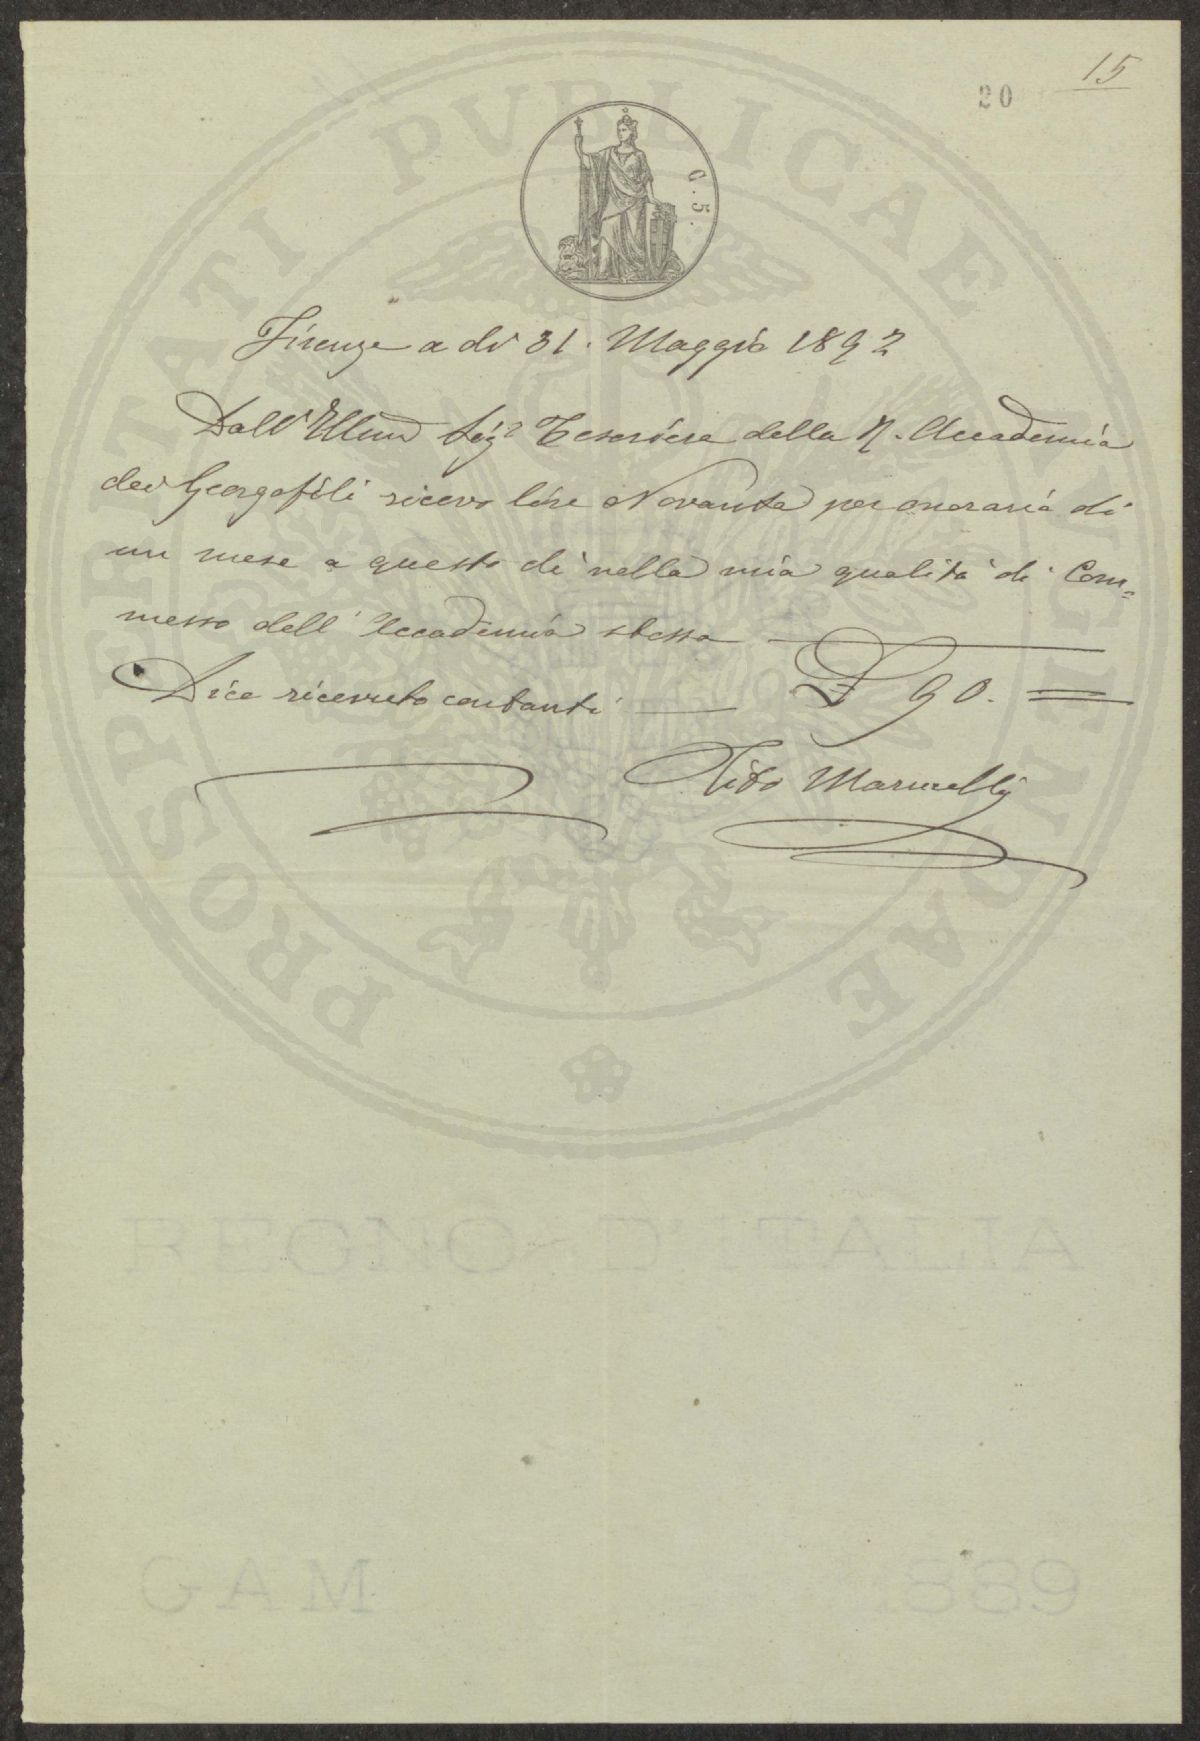 15
20
C. 5.
Firenze a dì 31. Maggio 1892
Dall' Illmo Sigr Tesoriere della R. Accademia
dei Georgofili ricevo lire Novanta per onorario di
un mese a questo dì nella mia qualità di Com=
messo dell' Accademia stessa
Dico ricevuto contanti £ 90. =
Tito
PROSPERITATI PVBLICAE AVGENDAE
REGNO D'ITALIA
GAM 1889